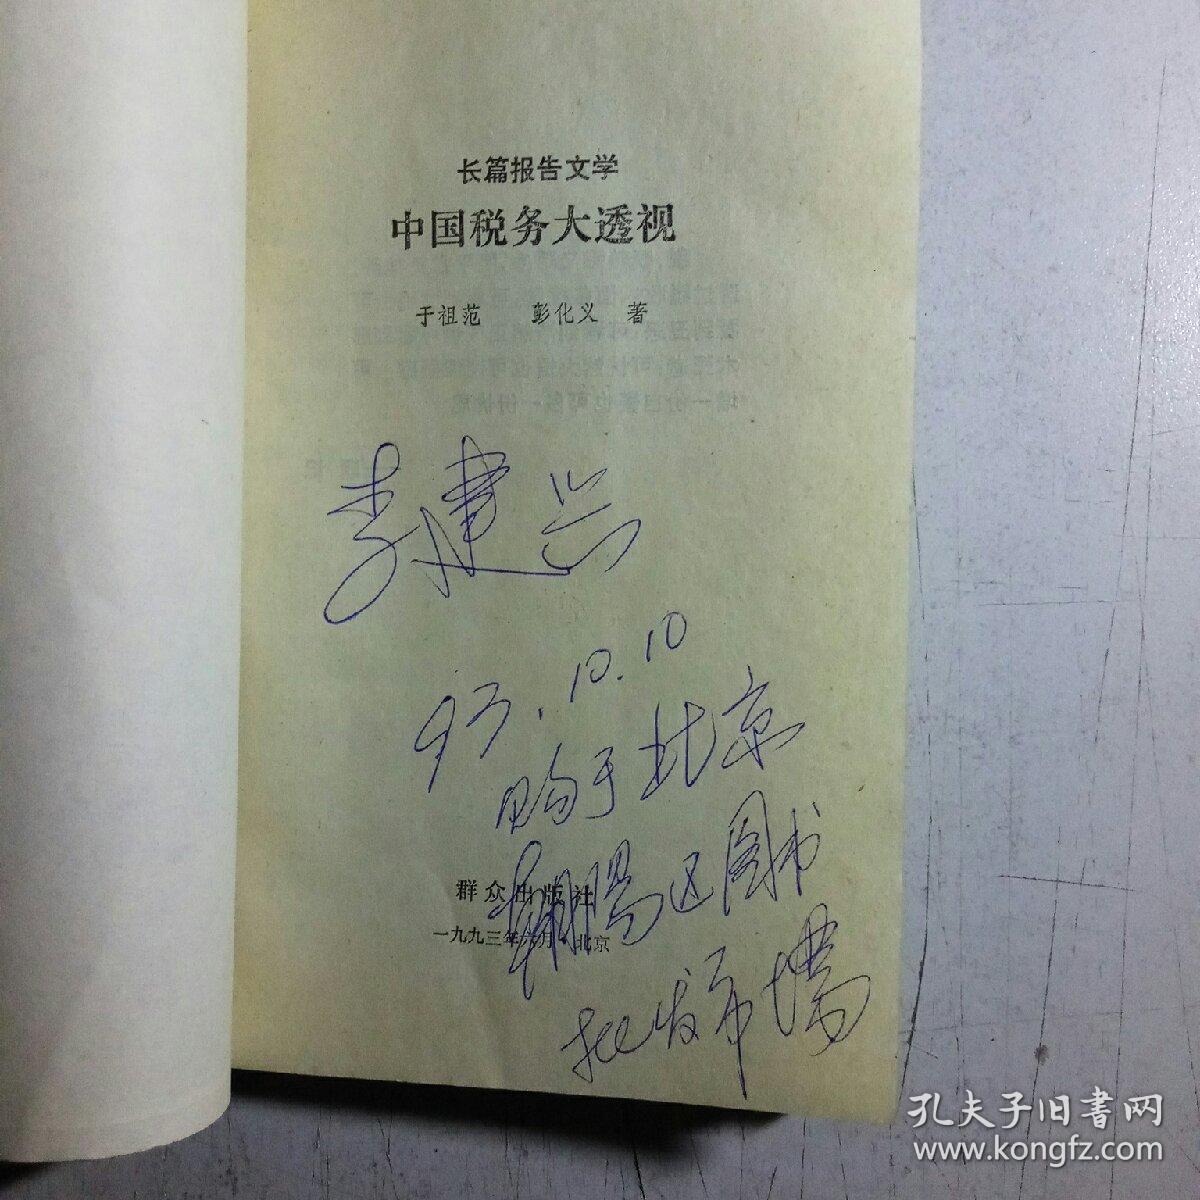 长篇报告文学
中国税务大透视
于祖范 彭化义 著
李建兴
93.10.10
购于北京
朝陽区图书
批发市場
群众出版社
一九九三年六月·北京
孔夫子旧書网
www.kongfz.com